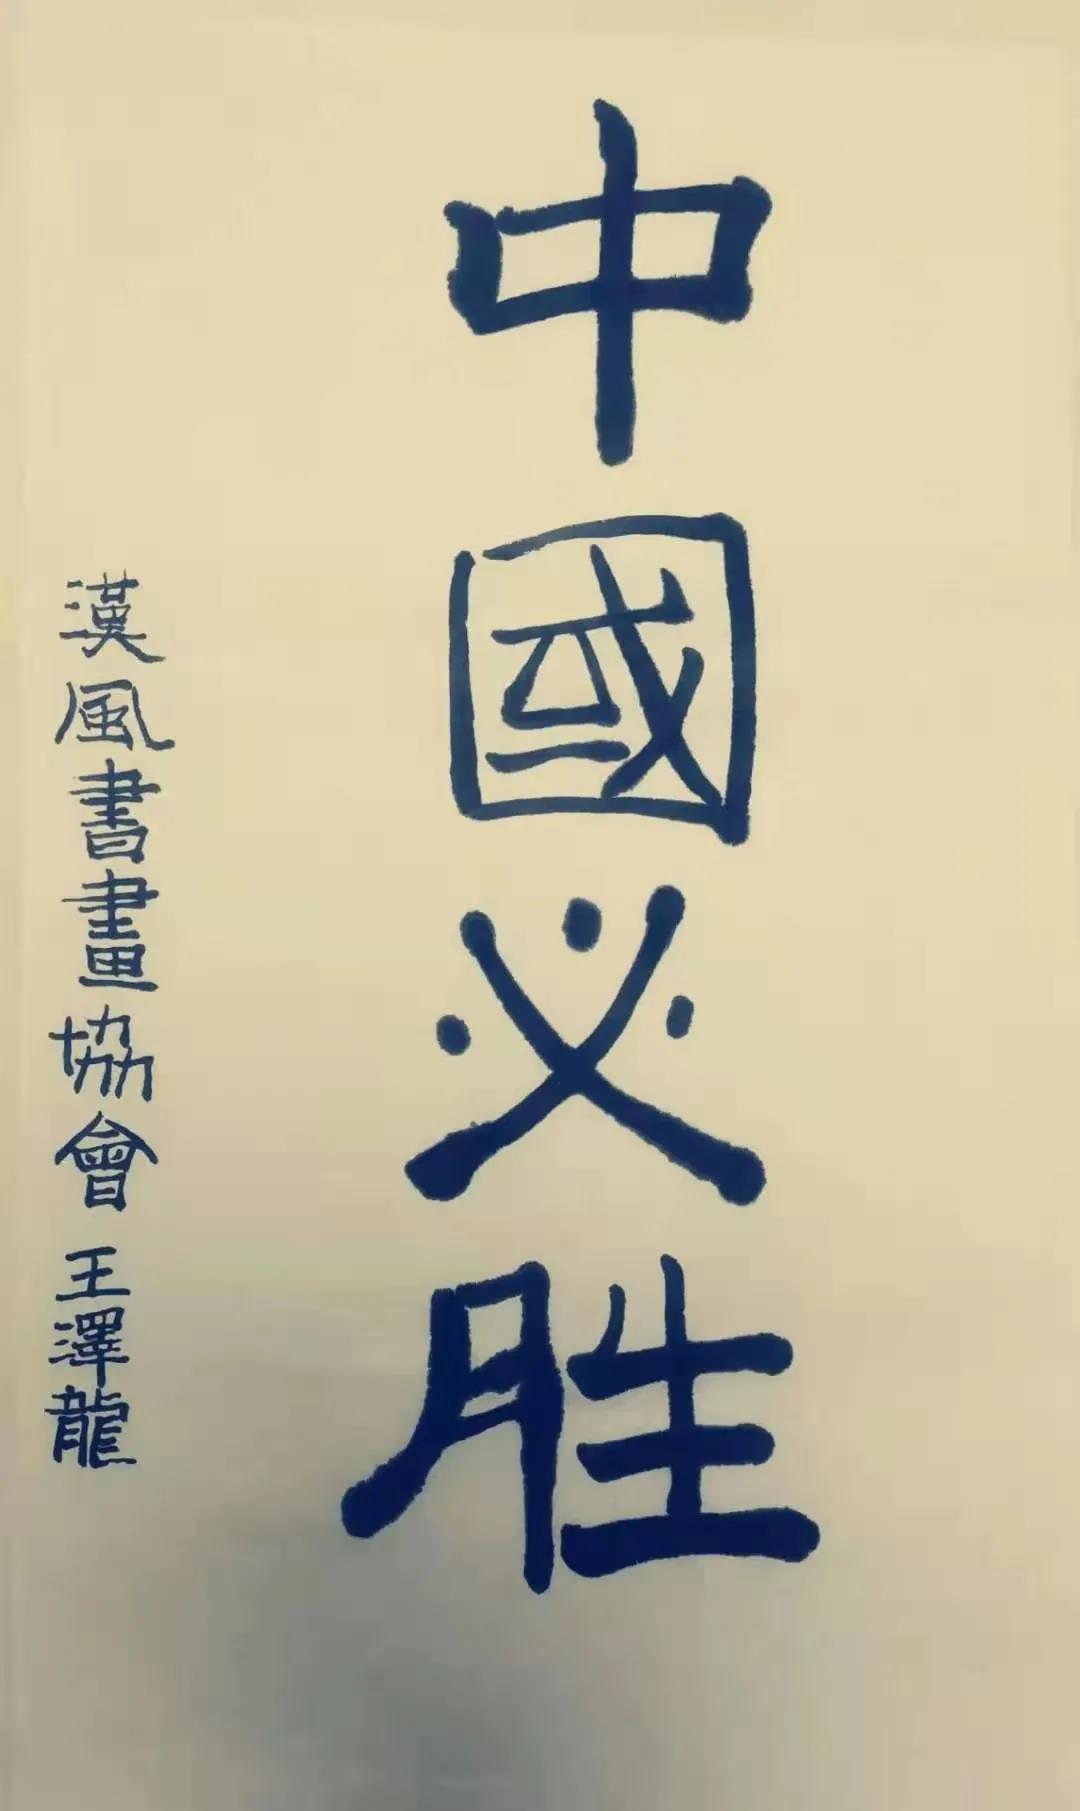 中國必胜
漢風書畫協會 王澤龍